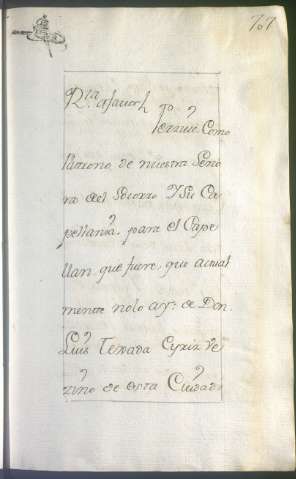 707
Rta afavor
Como
Patrono de nuestra Seño
ra del Socorro Y Su Ca
pellania. para el Cape
llan. que fuere, que actual
mente nolo ay: de Don.
Luis Texada Cyriz Ve
zino de esta Ciudad